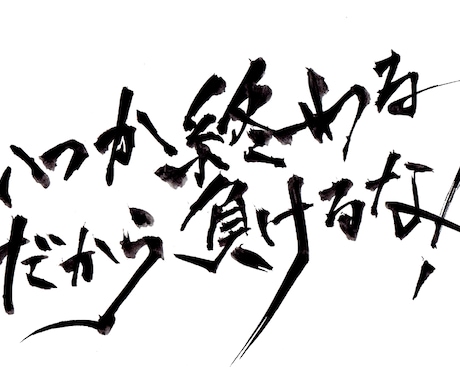 いつか終わる
だから負けるな!